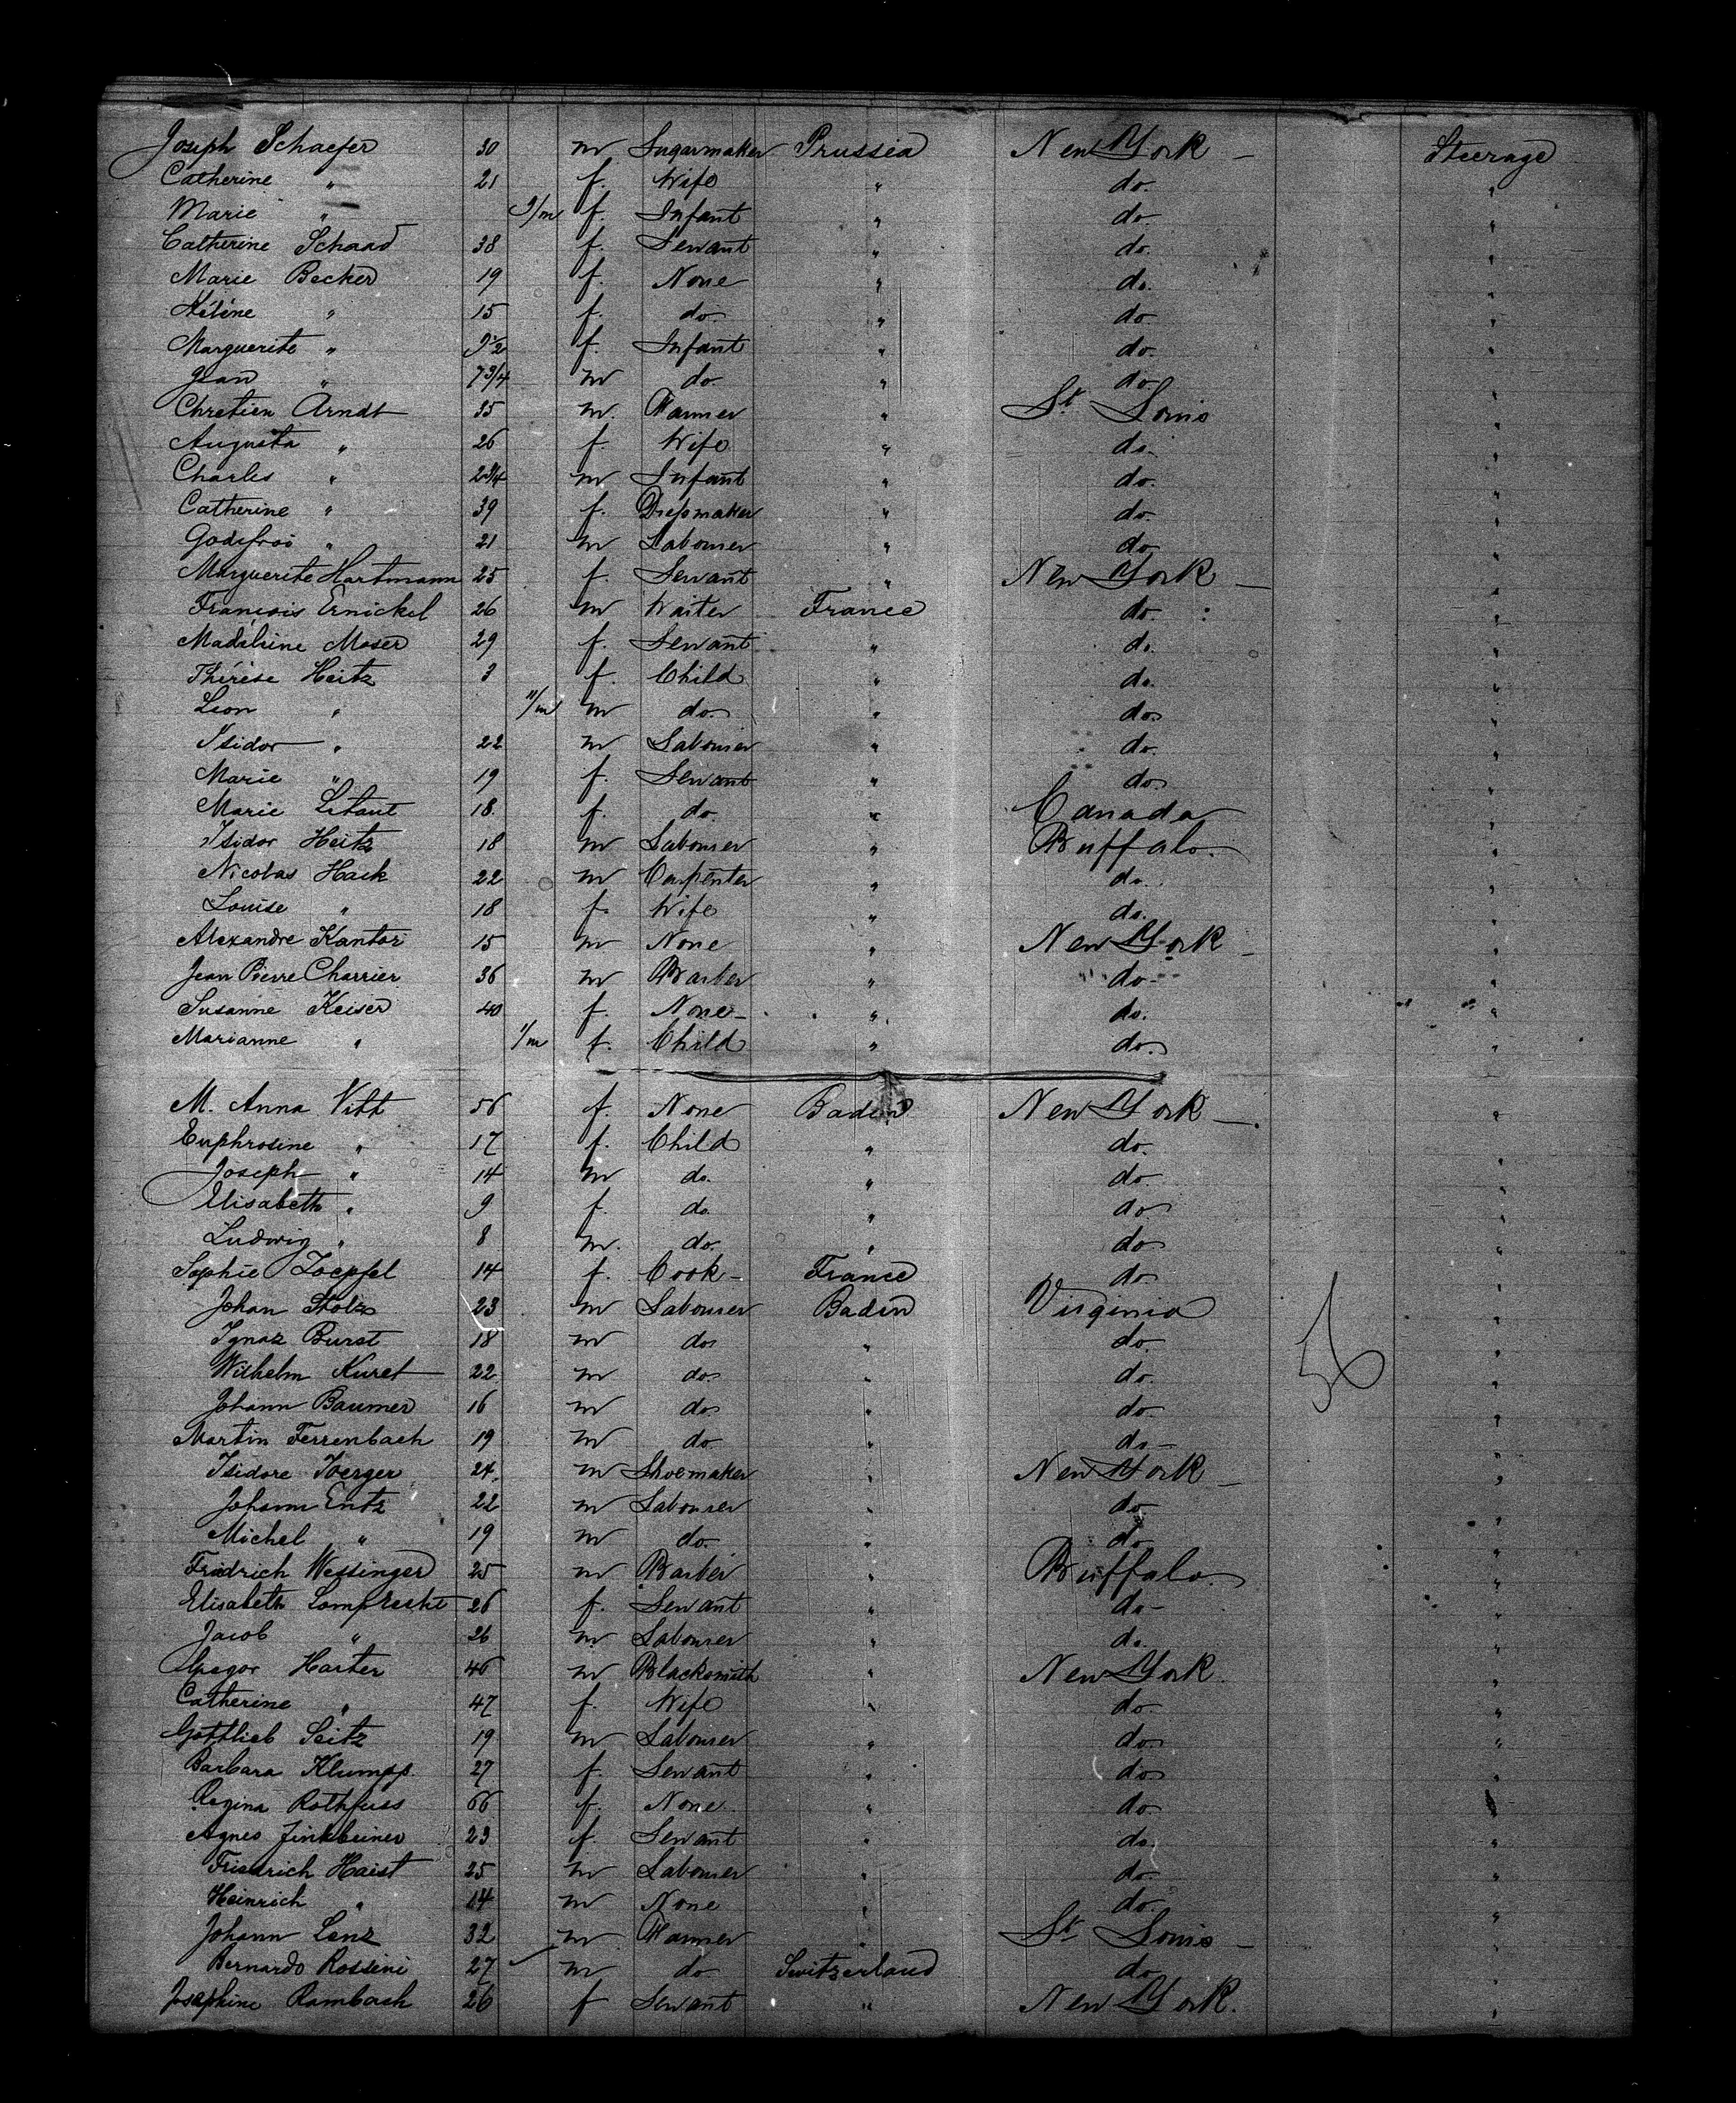 Joseph Schaefer 30 m Sugarmaker Prussia New York — Steerage
Catherine " 21 f. Wife " do. "
Marie " 9/m f. Infant " do. "
Catherine Schaad 38 f. Servant " do. "
Marie Becker 19 f. None " do. "
Hélène " 15 f. do. " do. "
Marguerite " 9 1/2 f. Infant " do. "
Jean " 7 3/4 m do. " do. "
Chretien Arndt 35 m. Farmer " St Louis "
Augusta " 26 f. Wife " do. "
Charles " 2 3/4 m Infant " do. "
Catherine " 39 f. Dressmaker " do. "
Godefroi " 21 m Labourer " do "
Marguerite Hartmann 25 f. Servant " New York — "
François Ernickel 26 m Waiter France do. "
Madeleine Moser 29 f. Servant " do. "
Thérèse Heitz 3 f. Child " do. "
Leon " 11/m m do. " do. "
Isidor " 22 m Labourer " do. "
Marie " 19 f. Servant " do. "
Marie 18. f. do " Canada "
Isidor Heitz 18 m Labourer " Buffalo. "
Nicolas Hack 22 m Carpenter " do. "
Louise " 18 f. Wife " do. "
Alexandre Kantor 15 m None " New York — "
Jean Pierre Charrier 36 m Barber " do- "
Susanne Keiser 40 f. None — " do. "
Marianne " 1/m f. Child " do. "
M. Anna Vitt 56 f. None Baden New York —. "
Euphrosine " 17 f. Child " do. "
Joseph " 14 m do. " do "
Elisabeth " 9 f. do. " do "
Ludwig " 8 m. do. " do "
Sophie Zoepfel 14 f. Cook — France do "
Johan Stolz 23 m Labourer Baden Virginia "
Ignaz Burst 18 m do " do "
Wilhelm Kuret 22 m do " do. "
Johann Baumer 16 m do. " do. 56 "
Martin Ferrenbach 19 m do " do — "
Isidore Joerger 24. m Shoemaker " New York — "
Johann Entz 22 m Labourer " do "
Michel " 19 m do. " do "
Fridrich Wessinger 25 m Barber " Buffalo. "
Elisabeth Lamprecht 26 f. Servant " do — "
Jacob " 26 m Labourer " do. "
Gregor Harter 46 m Blacksmith " New York. "
Catherine " 47 f. Wife " do. "
Gottlieb Seitz 19 m Labourer " do. "
Barbara Klumpp. 27 f. Servant " do "
Regina Rothfuss 66 f. None " do "
Agnes Finkbeiner 23 f Servant " do. "
Friedrich Haist 25 m Labourer " do "
Heinrich " 14 m None " do. "
Johann Lenz 32 m Farmer " St Louis — "
Bernardo Rossini 27 m do Switzerland do "
Josephine Rambach 26 f Servant " New York. "